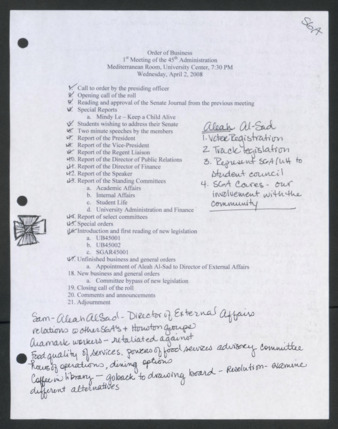 SGA
Order of Business
1st Meeting of the 45th Administration
Mediterranean Room, University Center, 7:30 PM
Wednesday, April 2, 2008
1. Call to order by the presiding officer
2. Opening call of the roll
3. Reading and approval of the Senate Journal from the previous meeting
4. Special Reports
a. Mindy Le – Keep a Child Alive
5. Students wishing to address their Senate
6. Two minute speeches by the members
7. Report of the President
8. Report of the Vice-President
9. Report of the Regent Liaison
10. Report of the Director of Public Relations
11. Report of the Director of Finance
12. Report of the Speaker
13. Report of the Standing Committees
a. Academic Affairs
b. Internal Affairs
c. Student Life
d. University Administration and Finance
14. Report of select committees
15. Special orders
16. Introduction and first reading of new legislation
a. UB45001
b. UB45002
c. SGAR45001
17. Unfinished business and general orders
a. Appointment of Aleah Al-Sad to Director of External Affairs
18. New business and general orders
a. Committee bypass of new legislation
19. Closing call of the roll
20. Comments and announcements
21. Adjournment
Aleah Al-Sad
1. Voter Registration
2. Track legislation
3. Represent SGA/UH to
student council
4. SGA Cares - our
involvement with the
community
Sam - Aleah Al Sad - Director of External Affairs
relations w other SGA's + Houston groups
Aramark workers - retaliated against
Food quality of services, powers of food services advisory committee
hours of operations, dining options
library - go back to drawing board - Resolution - examine
different alternatives